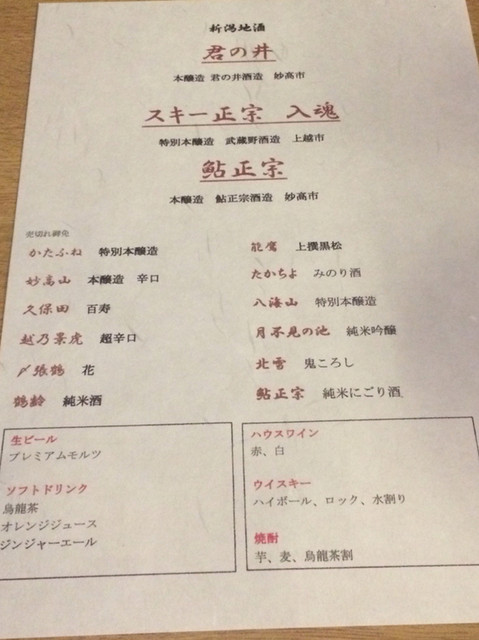 新潟地酒
君の井
本醸造 君の井酒造 妙高市
スキー正宗 入魂
特別本醸造 武蔵野酒造 上越市
鮎正宗
本醸造 鮎正宗酒造 妙高市
売切れ御免
かたふね 特別本醸造
妙高山 本醸造 辛口
久保田 百寿
越乃景虎 超辛口
〆張鶴 花
鶴齢 純米酒
能鷹 上撰黒松
たかちよ みのり酒
八海山 特別本醸造
月不見の池 純米吟醸
北雪 鬼ころし
鮎正宗 純米にごり酒
生ビール
プレミアムモルツ
ソフトドリンク
烏龍茶
オレンジジュース
ジンジャーエール
ハウスワイン
赤、白
ウイスキー
ハイボール、ロック、水割り
焼酎
芋、麦、烏龍茶割